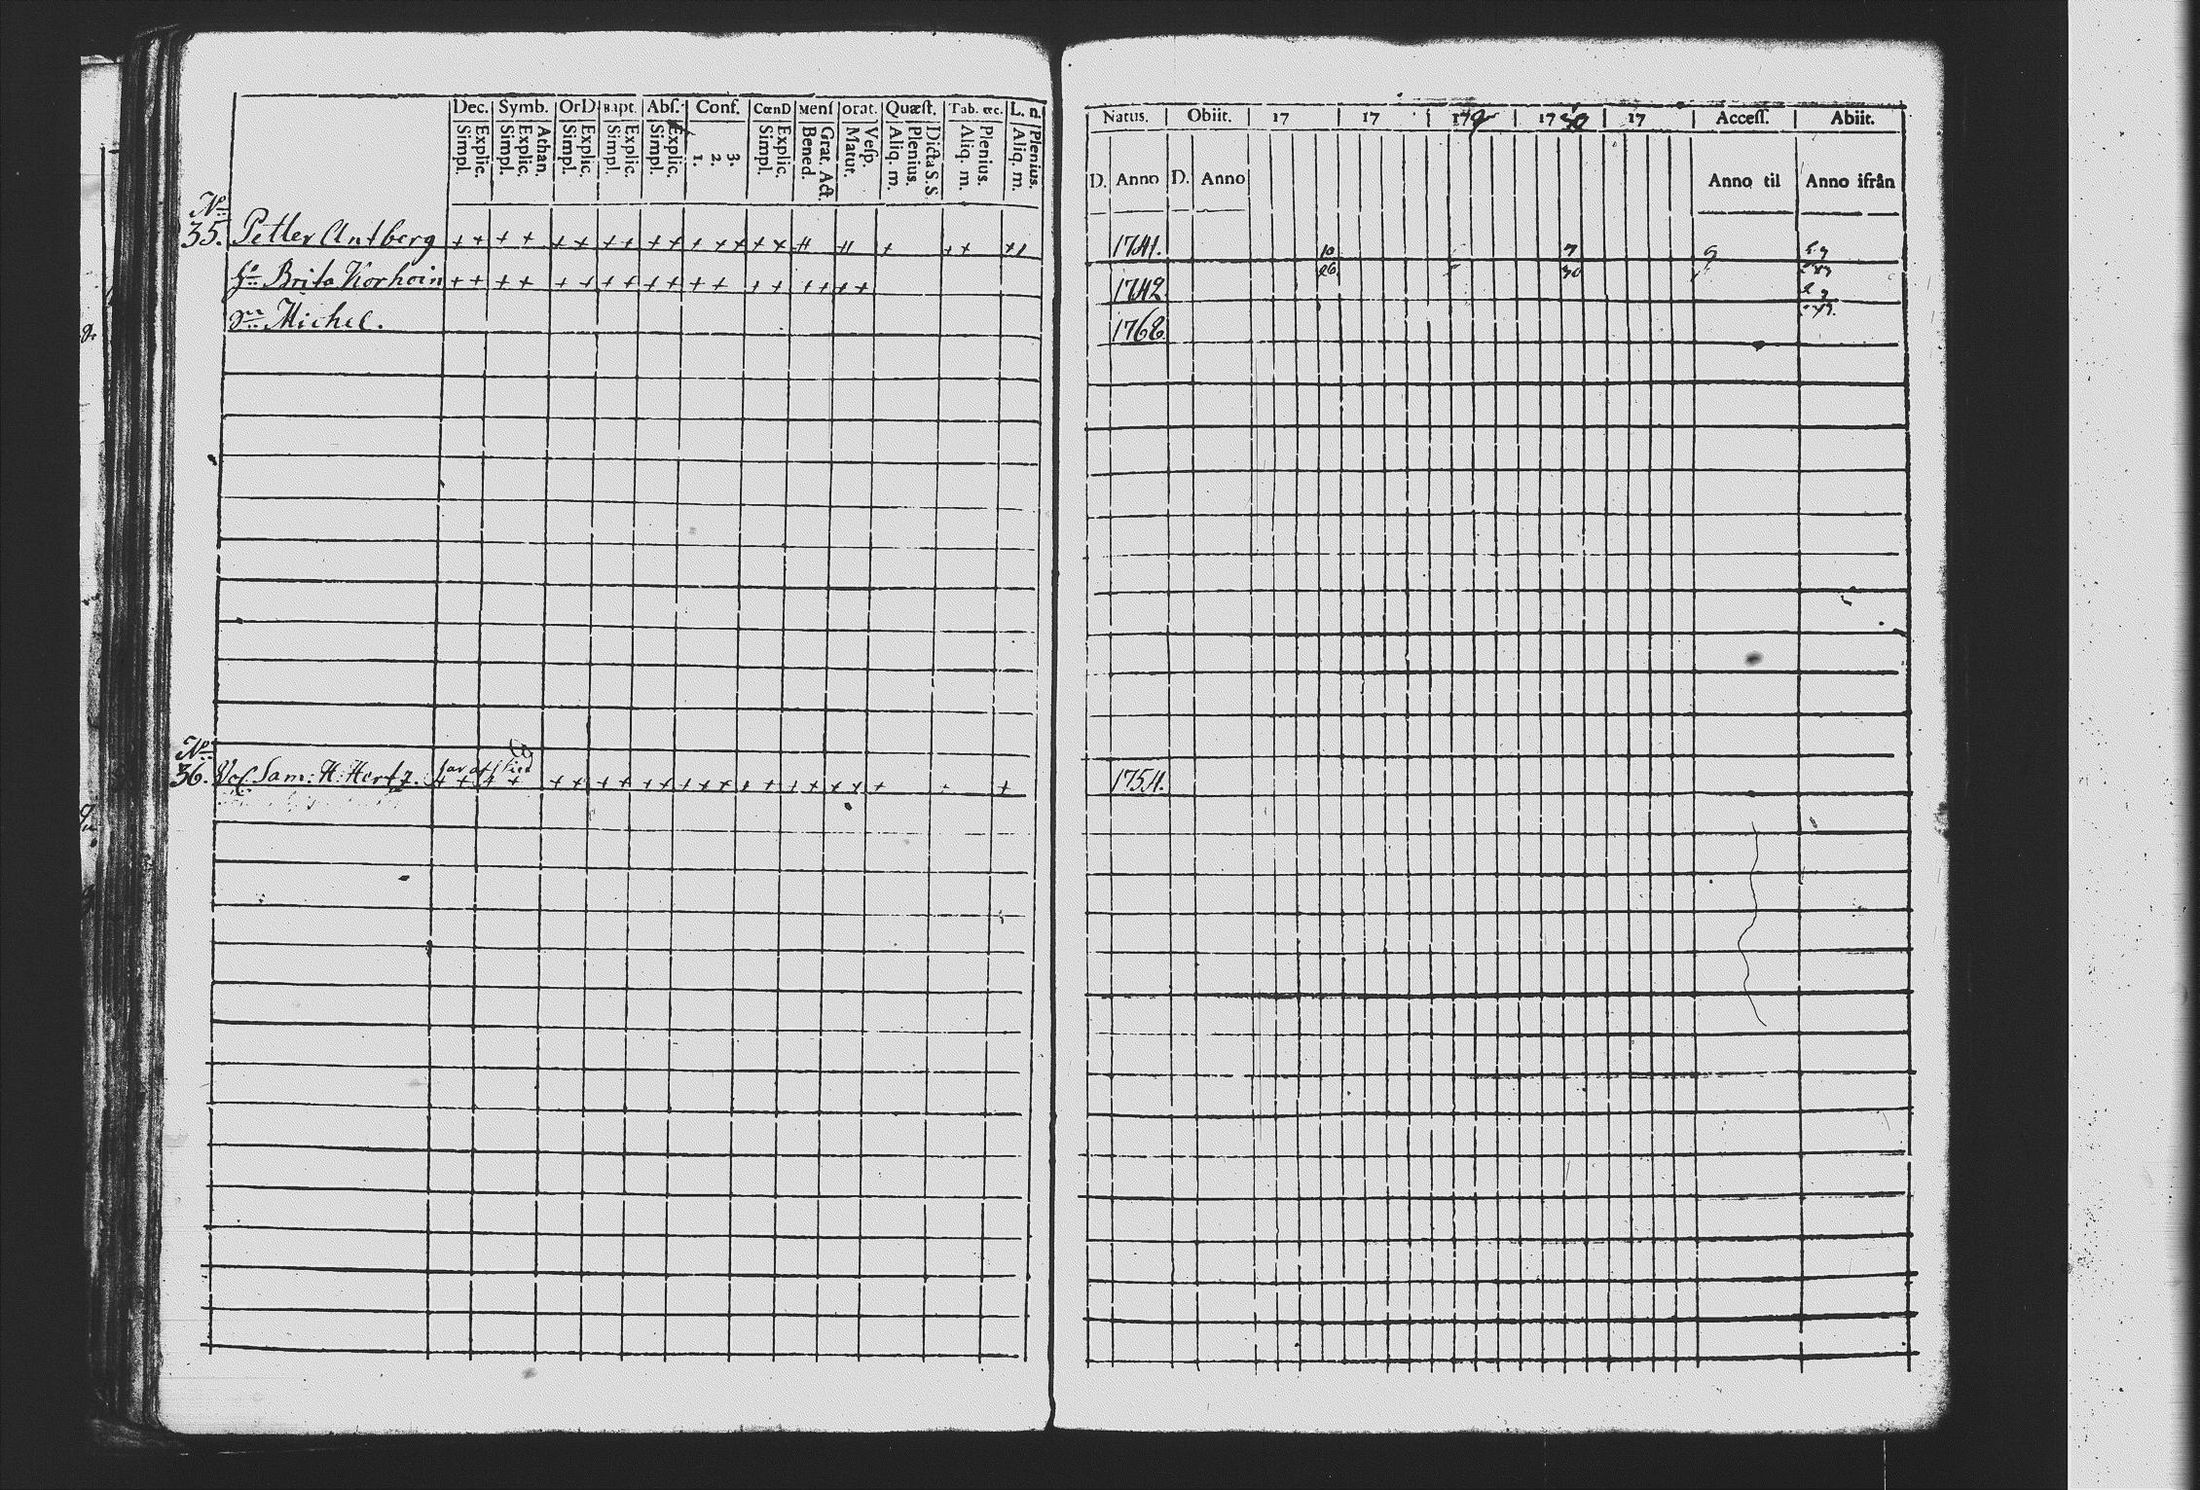 Dec. Symb. OrD Bapt. Abſ. Conf. CœnD Menſ orat. Quæſt. Tab. œc. L. d
Simpl. Explic. Simpl. Explic. Athan. Simpl. Explic. Simpl. Explic. Simpl. Explic. 1. 2. 3. Simpl. Explic. Bened. Grat. Act. Matut. Veſp. Aliq. m. Plenius. Dicta S.S Aliq. m. Plenius. Aliq. m. Plenius.
No
35. Petter Antberg + + + + + + + + + + + + + + + + + + + +
Hu Brita Korhoin + + + + + + + + + + + + + + + + + +
Sn Michel.
No
36. Vol. Sam: H: Hertz. har afsked + + + + + + + + + + + + + + + + + + + + +
Natus. Obiit. 17 17 179 1780 17 Acceſſ. Abiit.
D. Anno D. Anno Anno til Anno ifrån
1741. 10 7
26 30
1742
1768.
1754.